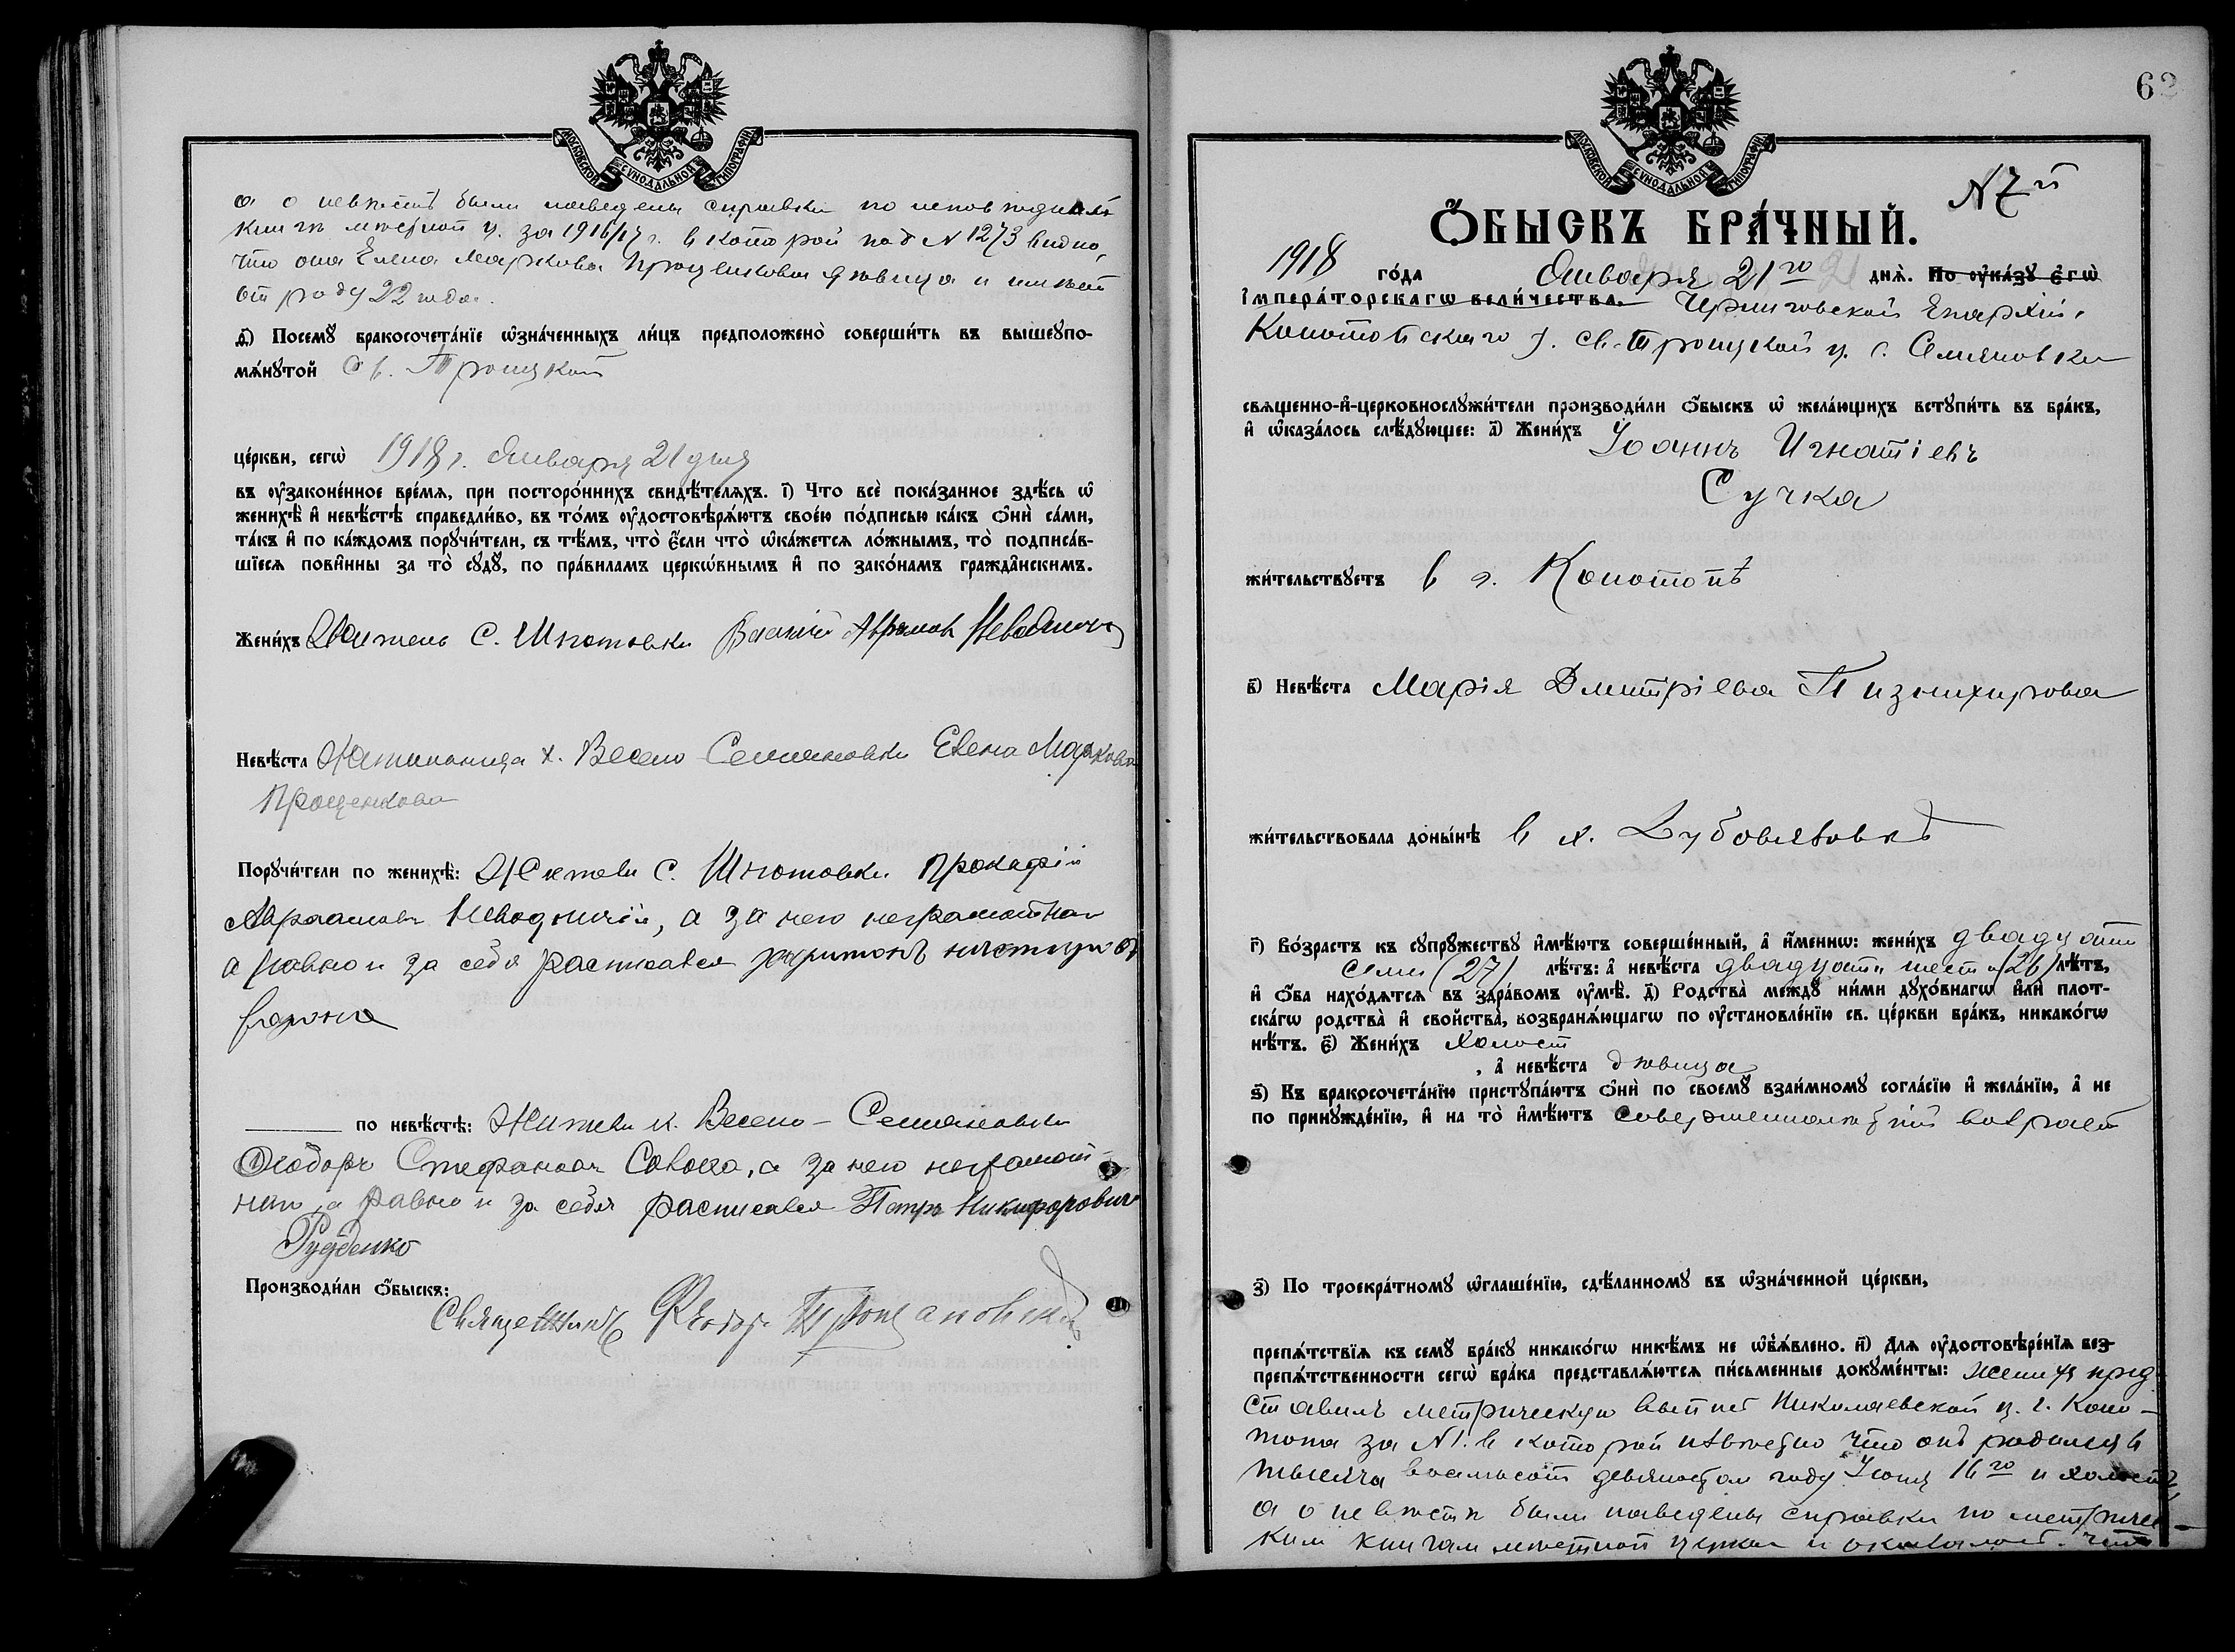 МОСКОВСКОЙ СѴНОДАЛЬНОЙ ТИПОГРАФІИ
а о невѣстѣ были наведены справки по исповѣднымъ
книгъ мѣстной ц. за 1916/17 г. в которой под N 1273 видно,
что она Елена Маркова Проценкова дѣвица и имѣетъ
от роду 22 года.
д҃) Посемꙋ̀ бракосочета́нїе ѡ҆зна́ченныхъ ли́цъ предположено̀ соверши́ть въ вышеꙋпо-
мѧ́нꙋтой Св. Троицкой
це́ркви, сегѡ̀ 1918 г. Января 21 дня
въ ᲂу҆законе́нное вре́мѧ, при посторо́ннихъ свидѣ́телѧхъ. і҃) Что всѐ пока́занное здѣ́сь ѡ҆
женихѣ̀ и҆ невѣ́стѣ справедли́во, въ то́мъ ᲂу҆достовѣрѧ́ютъ свое́ю по́дписью ка́къ ѻ҆нѝ са́ми,
та́къ и҆ по ка́ждомъ порꙋчи́тели, съ тѣ́мъ, что̀ є҆́сли что̀ ѡ҆ка́жетсѧ ло́жнымъ, то̀ подписа́в-
шїесѧ пови́нны за то̀ сꙋдꙋ̀, по пра́виламъ церкѡ́внымъ и҆ по зако́намъ гражда́нскимъ.
Жени́хъ Житель С. Шпотовки Василій Аврамов Неводничій
Невѣ́ста Жительница х. Весело Семеновки Елена Маркова
Проценкова
Порꙋчи́тели по женихѣ̀: Жители С. Шпотовки Прокофій
Авраамовъ Неводничій, а за него неграмотнаго
а равно и за себя расписался
по невѣ́стѣ: Жители х. Весело-Семеновки
Ѳеодоръ Стефановъ Совога, а за него неграмот-
наго, а равно и за себя расписался Петръ Никифоровичъ
Рудденко
Производи́ли ѻ҆́быскъ:
Священникъ Ѳеодоръ
62
МОСКОВСКОЙ СѴНОДАЛЬНОЙ ТИПОГРАФІИ
N 7й
Ѻ҆́БЫСКЪ БРА́ЧНЫЙ.
1918 го́да Января 21го днѧ̀. По ᲂу҆ка́зꙋ є҆гѡ̀
і҆мпера́торскагѡ вели́чества. Черниговской Епархіи,
Конотопскаго у. Св. Троицкой ц. с. Семяновки
свѧще́нно-и҆-церковнослꙋжи́тели производи́ли ѻ҆́быскъ ѡ҆ жела́ющихъ встꙋпи́ть въ бра́къ,
и҆ ѡ҆каза́лось слѣ́дꙋющее: а҃) Жени́хъ Іоаннъ Игнатіевъ
Сучка
жи́тельствꙋетъ в г. Конотопѣ
в҃) Невѣ́ста Марія Дмитріева
жи́тельствовала доны́нѣ в х. Дубовязовкѣ
г҃) Во́зрастъ къ сꙋпрꙋ́жествꙋ и҆мѣ́ютъ соверше́нный, а҆ и҆́менно: жени́хъ двадцати
семи (27) лѣ́тъ: а҆ невѣ́ста двадцати шести (26) лѣ́тъ,
и҆ ѻ҆́ба нахо́дѧтсѧ въ здра́вомъ ᲂу҆мѣ̀. д҃) Родства̀ междꙋ̀ ни́ми дꙋхо́внагѡ и҆лѝ плот-
ска́гѡ родства̀ и҆ свойства̀, возбранѧ́ющагѡ по ᲂу҆становле́нїю св. це́ркви бра́къ, никако́гѡ
нѣ́тъ. є҃) Жени́хъ холост
, а҆ невѣ́ста дѣвица
ѕ҃) Къ бракосочета́нїю пристꙋпа́ютъ ѻ҆нѝ по своемꙋ̀ взаи́мномꙋ согла́сїю и҆ жела́нїю, а҆ не
по принꙋжде́нїю, и҆ на то̀ и҆мѣ́ютъ совершеннолѣтній возраст
з҃) По троекра́тномꙋ ѡ҆глаше́нїю, сдѣ́ланномꙋ въ ѡ҆зна́ченной це́ркви,
препѧ́тствїѧ къ семꙋ̀ бра́кꙋ никако́гѡ никѣ́мъ не ѡ҆б̾ѧ́влено. и҃) Длѧ ᲂу҆достовѣре́нїѧ без-
препѧ́тственности сегѡ̀ бра́ка представлѧ́ютсѧ пи́сьменные докꙋме́нты: жених пред
ставилъ метрическую выпис Николаевской ц. г. Коно-
топа за N 1. в которой извѣстно что онъ родился в
тысяча восемьсот девяностом году Іюня 16го и холостъ
а о невѣсте были наведены справки по метричес-
ким книгам мѣстной церкви и оказалось. что